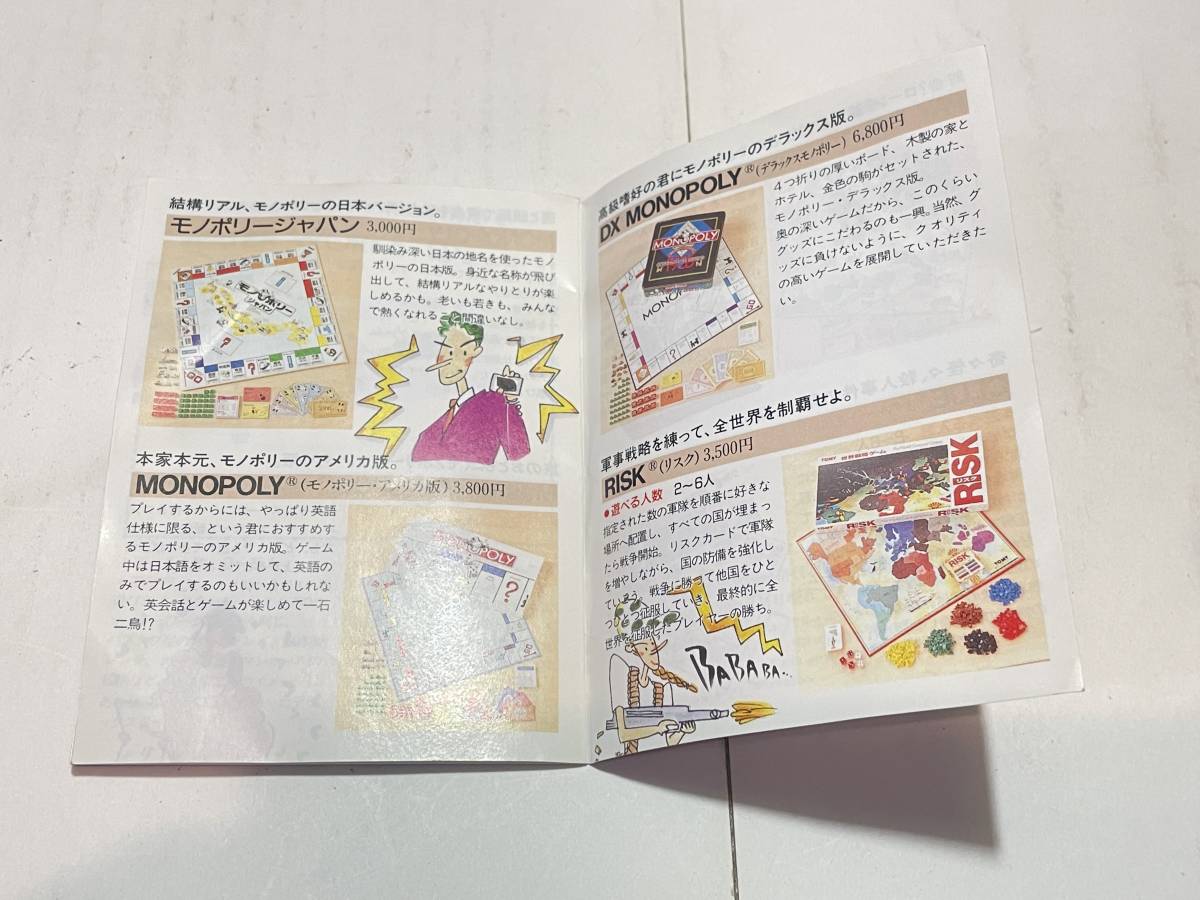 結構リアル、モノポリーの日本バージョン。
モノポリージャパン 3,000円
馴染み深い日本の地名を使ったモノ
ポリーの日本版。身近な名称が飛び
出して、結構リアルなやりとりが楽
しめるかも。老いも若きも、みんな
で熱くなれること間違いなし。
モノポリー
ジャパン
本家本元、モノポリーのアメリカ版。
MONOPOLY®(モノポリー・アメリカ版) 3,800円
プレイするからには、やっぱり英語
仕様に限る、という君におすすめす
るモノポリーのアメリカ版。ゲーム
中は日本語をオミットして、英語の
みでプレイするのもいいかもしれな
い。英会話とゲームが楽しめて一石
二鳥!?
高級嗜好の君にモノポリーのデラックス版。
DX MONOPOLY®(デラックスモノポリー) 6,800円
4つ折りの厚いボード、木製の家と
ホテル、金色の駒がセットされた、
モノポリー・デラックス版。
奥の深いゲームだから、このくらい
グッズにこだわるのも一興。当然、グ
ッズに負けないように、クオリティ
の高いゲームを展開していただきた
い。
MONOPOLY
軍事戦略を練って、全世界を制覇せよ。
RISK®(リスク) 3,500円
●遊べる人数 2〜6人
指定された数の軍隊を順番に好きな
場所へ配置し、すべての国が埋まっ
たら戦争開始。リスクカードで軍隊
を増やしながら、国の防備を強化し
ていこう。戦争に勝って他国をひと
つひとつ征服していき、最終的に全
世界を征服したプレイヤーの勝ち。
BABABA...
TOMY 世界戦略ゲーム
RISK
リスク
RISK
RISK
RISK
TOMY